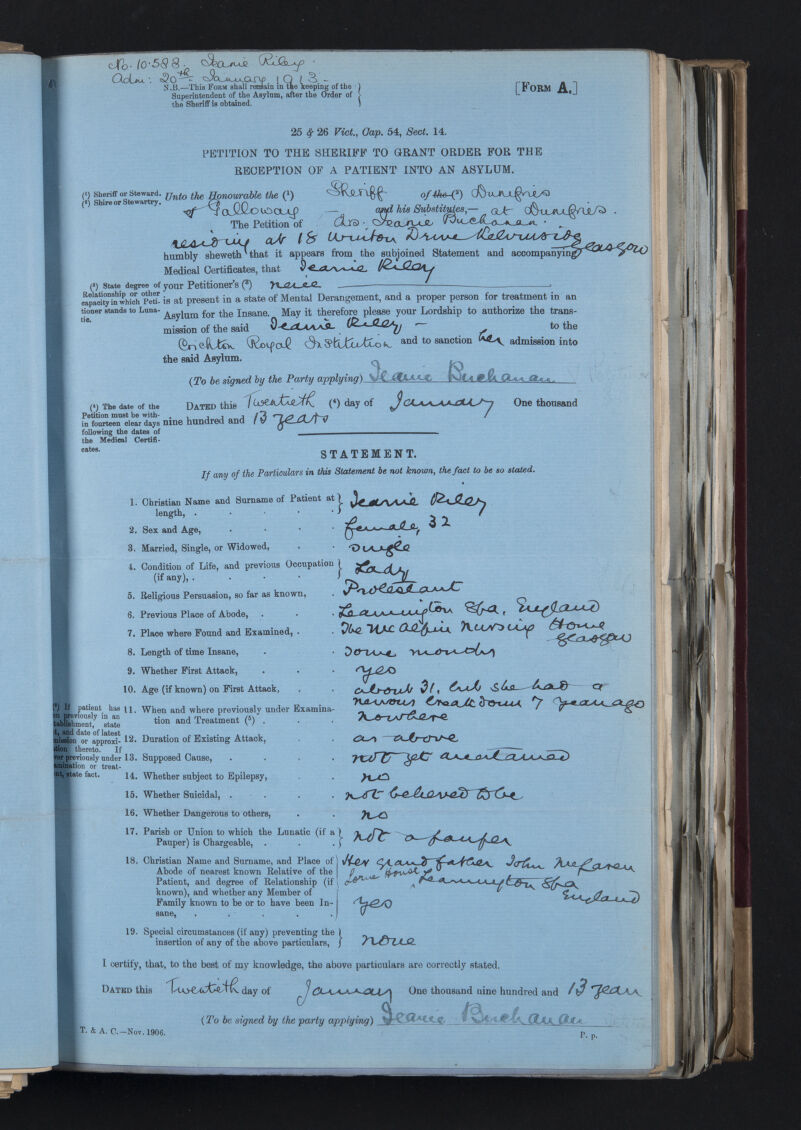 No. 10.588. Jeanie Riley.
Adm: 20th January 1913.-
N.B.—This FORM shall remain in the keeping of the
Superintendent of the Asylum, after the Order of
the Sheriff is obtained.
[FORM A.]
25 & 26 Vict., Cap. 54, Sect. 14.
PETITION TO THE SHERIFF TO GRANT ORDER FOR THE
RECEPTION OF A PATIENT INTO AN ASYLUM.
(¹) Sheriff or Steward.
(²) Shire or Stewartry.
Unto the Honourable the (¹) Sheriff of the (²) Dumfries
& Galloway — and his Substitutes,— at Dumfries.
The Petition of Mrs. Jeanie Buchanan.
residing at 18 Drive Kelvinside Glasgow
humbly sheweth that it appears from the subjoined Statement and accompanying
Medical Certificates, that Jeanie Riley
(³) State degree of
Relationship or other
capacity in which Peti-
tioner stands to Luna-
tic.
your Petitioner's (³) neice
is at present in a state of Mental Derangement, and a proper person for treatment in an
Asylum for the Insane. May it therefore please your Lordship to authorize the trans-
mission of the said Jeanie Riley — to the
Crichton Royal Institution and to sanction her admission into
the said Asylum.
(To be signed by the Party applying) Jeanie Buchanan
(⁴) The date of the
Petition must be with-
in fourteen clear days
following the dates of
the Medical Certifi-
cates.
DATED this Twentieth (⁴) day of January One thousand
nine hundred and 13 years
STATEMENT.
If any of the Particulars in this Statement be not known, the fact to be so stated.
1. Christian Name and Surname of Patient at length, . Jeanie Riley
2. Sex and Age, female, 32
3. Married, Single, or Widowed, single
4. Condition of Life, and previous Occupation (if any), . Lady
5. Religious Persuasion, so far as known, . Protestant
6. Previous Place of Abode, . Leamington Spa, England
7. Place where Found and Examined, . The McAlpin Nursing Home Glasgow
8. Length of time Insane, Some months
9. Whether First Attack, yes
10. Age (if known) on First Attack, about 31, but she had a
nervous breakdown 7 years ago
(⁵) If patient has
been previously in an
establishment, state
it, and date of latest
admission or approxi-
mation thereto. If
never previously under
examination or treat-
ment, state fact.
11. When and where previously under Examina-
tion and Treatment (⁵) . nowhere
12. Duration of Existing Attack, as above
13. Supposed Cause, not yet ascertained
14. Whether subject to Epilepsy, no
15. Whether Suicidal, . not believed to be
16. Whether Dangerous to others, no
17. Parish or Union to which the Lunatic (if a
Pauper) is Chargeable, . not a pauper
18. Christian Name and Surname, and Place of Her grandfather John McLaren
Abode of nearest known Relative of the Lorne House, Leamington Spa
Patient, and degree of Relationship (if England
known), and whether any Member of
Family known to be or to have been In- yes
sane,
19. Special circumstances (if any) preventing the
insertion of any of the above particulars, none
I certify, that, to the best of my knowledge, the above particulars are correctly stated.
DATED this Twentieth day of January One thousand nine hundred and 13 years
(To be signed by the party applying) Jeanie Buchanan
T. & A. C.—Nov. 1906.
P. p.